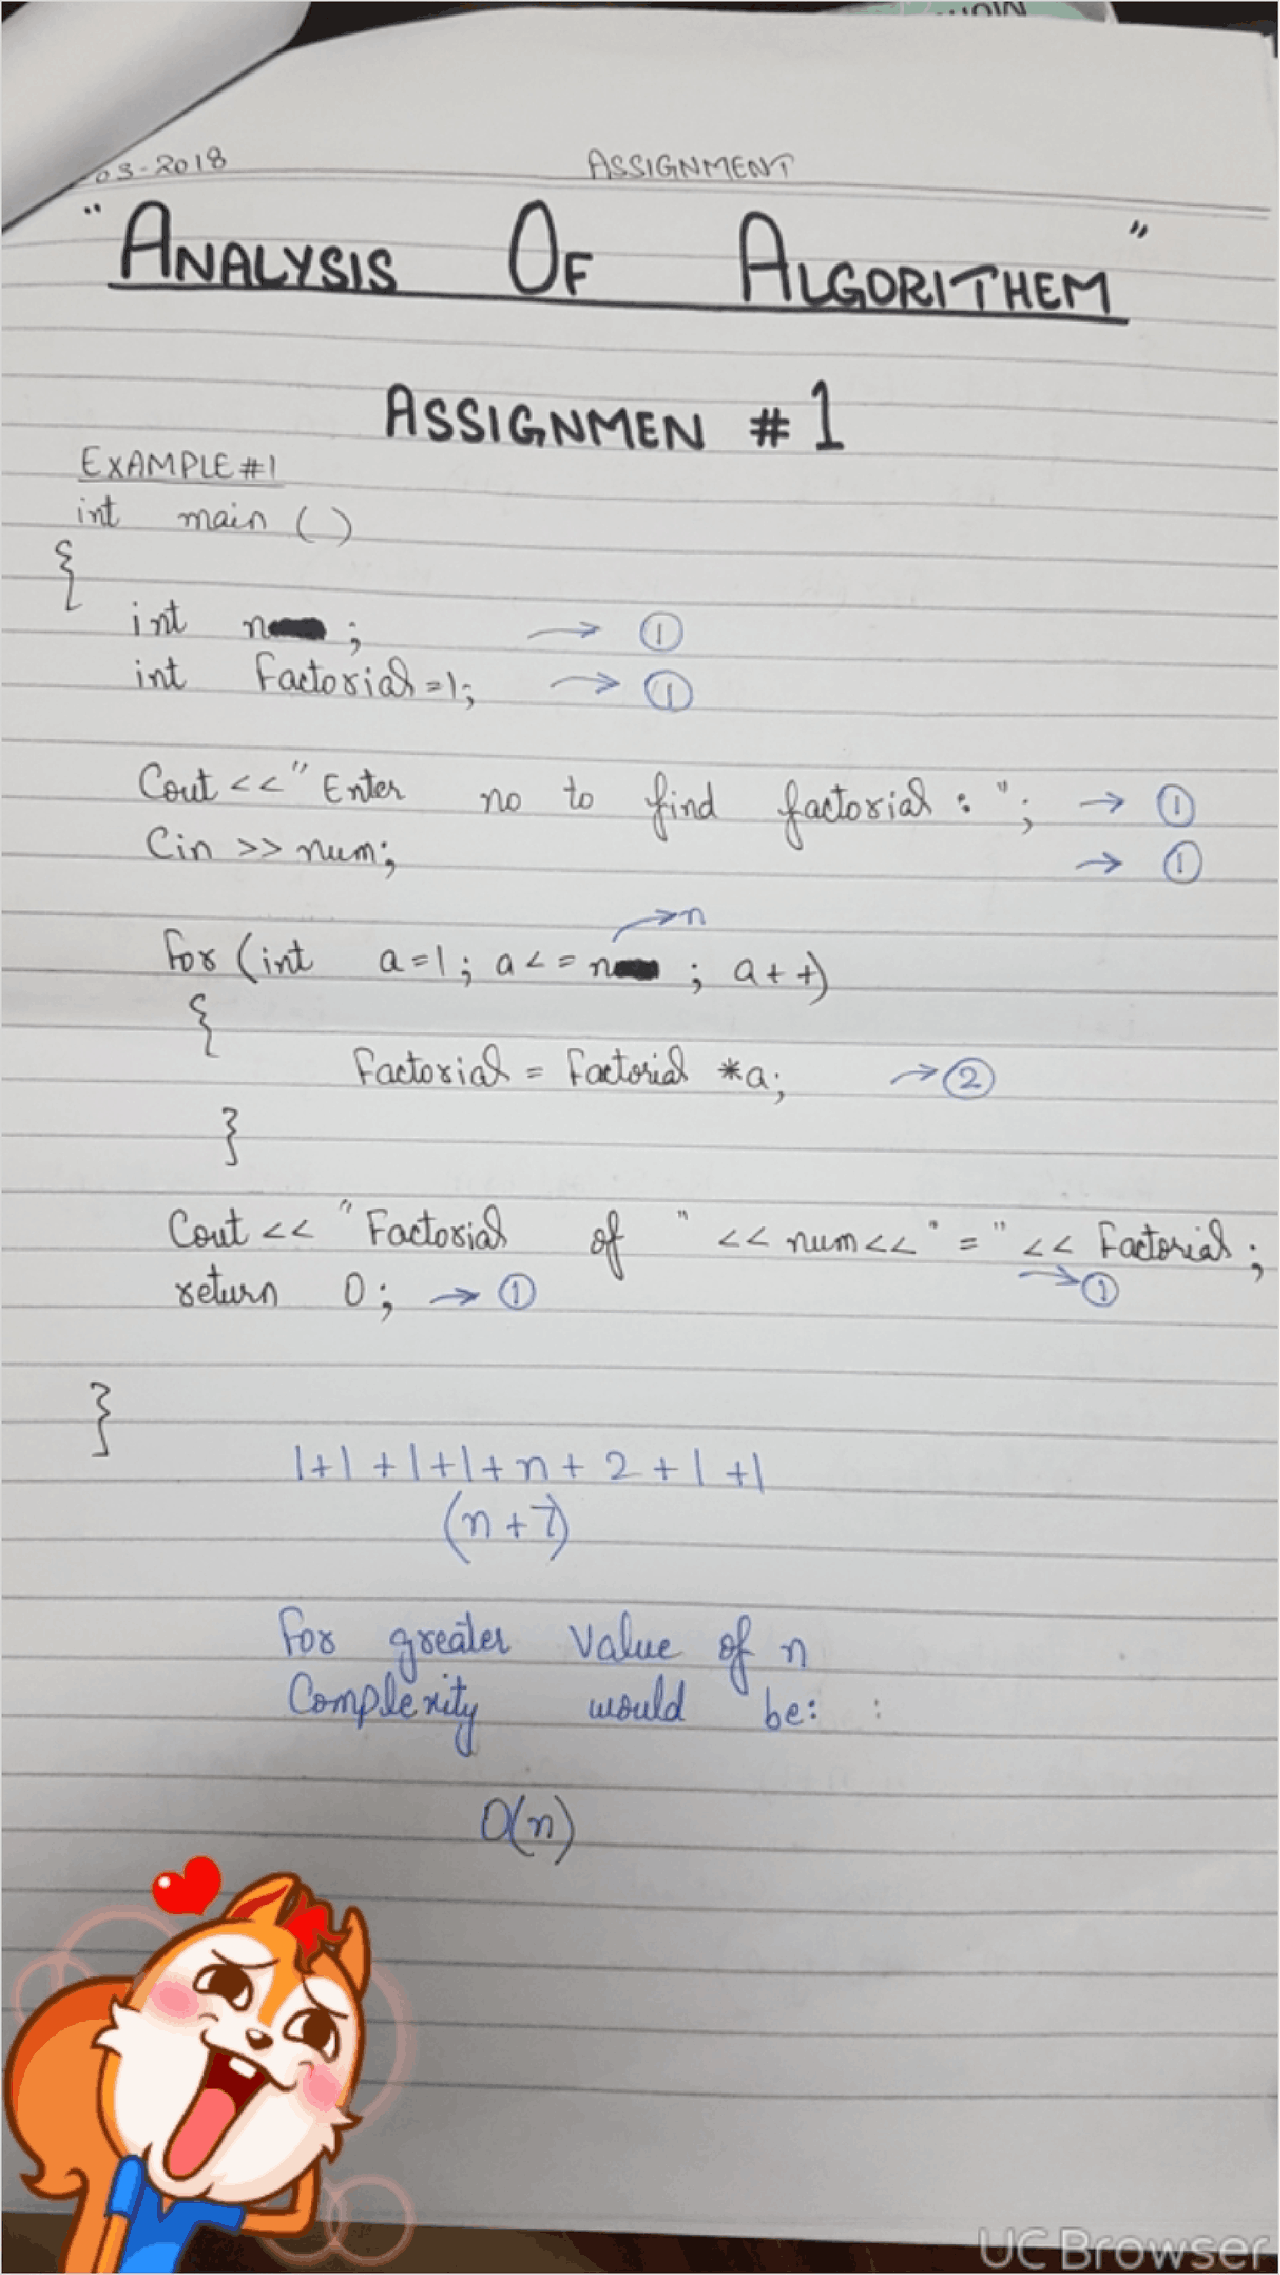 03-2018 ASSIGNMENT
"ANALYSIS OF ALGORITHEM"
ASSIGNMEN #1
EXAMPLE#1
int main ()
{
int n ; → ①
int Factorial=1; → ①
Cout <<" Enter no to find factorial : "; → ①
Cin >> num; → ①
→ n
For (int a=1; a<= n ; a++)
{
Factorial = Factorial *a; → ②
}
Cout << "Factorial of " << num<< "=" << Factorial;
return 0; → ① → ①
}
1+1+1+1+n+2+1+1
(n+7)
For greater Value of n
Complexity would be: :
O(n)
UC Browser